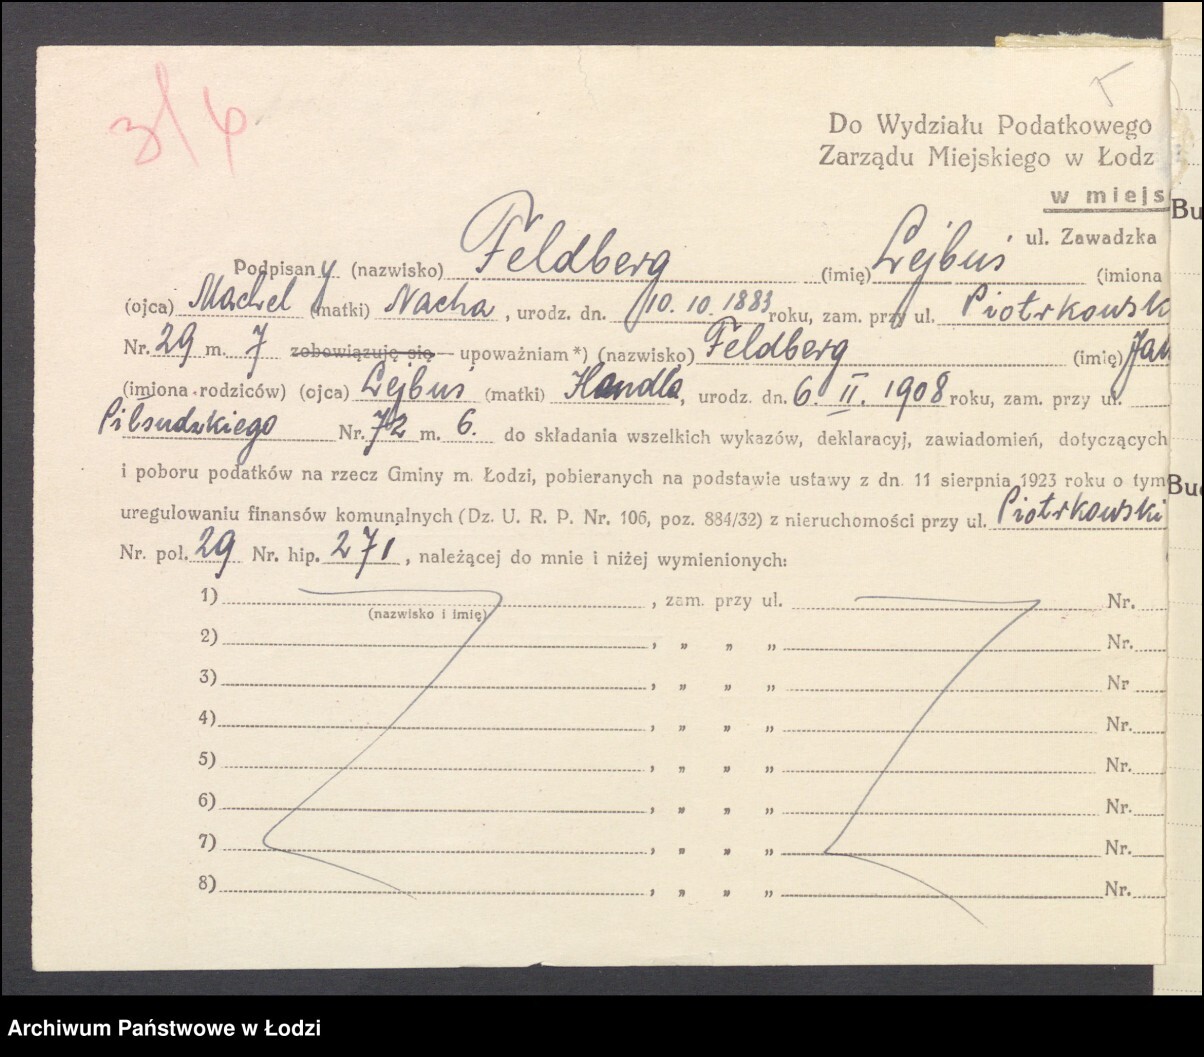 3/6
Do Wydziału Podatkowego
Zarządu Miejskiego w Łodz
w miejs
ul. Zawadzka
Podpisany (nazwisko) Feldberg (imię) Lejbuś (imiona
(ojca) Machel (matki) Nacha, urodz. dn. 10.10.1883 roku, zam. przy ul. Piotrkowsk
Nr. 29 m. 7 zobowiązuję się — upoważniam *) (nazwisko) Feldberg (imię)
(imiona rodziców) (ojca) Lejbuś (matki) Handla, urodz. dn. 6. II. 1908 roku, zam. przy ul.
Piłsudzkiego Nr. 72 m. 6. do składania wszelkich wykazów, deklaracyj, zawiadomień, dotyczących
i poboru podatków na rzecz Gminy m. Łodzi, pobieranych na podstawie ustawy z dn. 11 sierpnia 1923 roku o tym
uregulowaniu finansów komunalnych (Dz. U. R. P. Nr. 106, poz. 884/32) z nieruchomości przy ul. Piotrkowski
Nr. pol. 29 Nr. hip. 271, należącej do mnie i niżej wymienionych:
1) , zam. przy ul. Nr.
(nazwisko i imię)
2) , „ „ „ Nr.
3) , „ „ „ Nr
4) , „ „ „ Nr.
5) , „ „ „ Nr.
6) , „ „ „ Nr.
7) , „ „ „ Nr.
8) , „ „ „ Nr.
Bu
Bud
Archiwum Państwowe w Łodzi